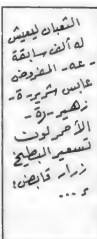 الثعبان ليعيش
له ألف سابقة
- عه - المفروض
عابس شرير - ة -
زهير - رة -
الأحمر لوت
تسعير البطيخ
زرار قابض؛
ر ...